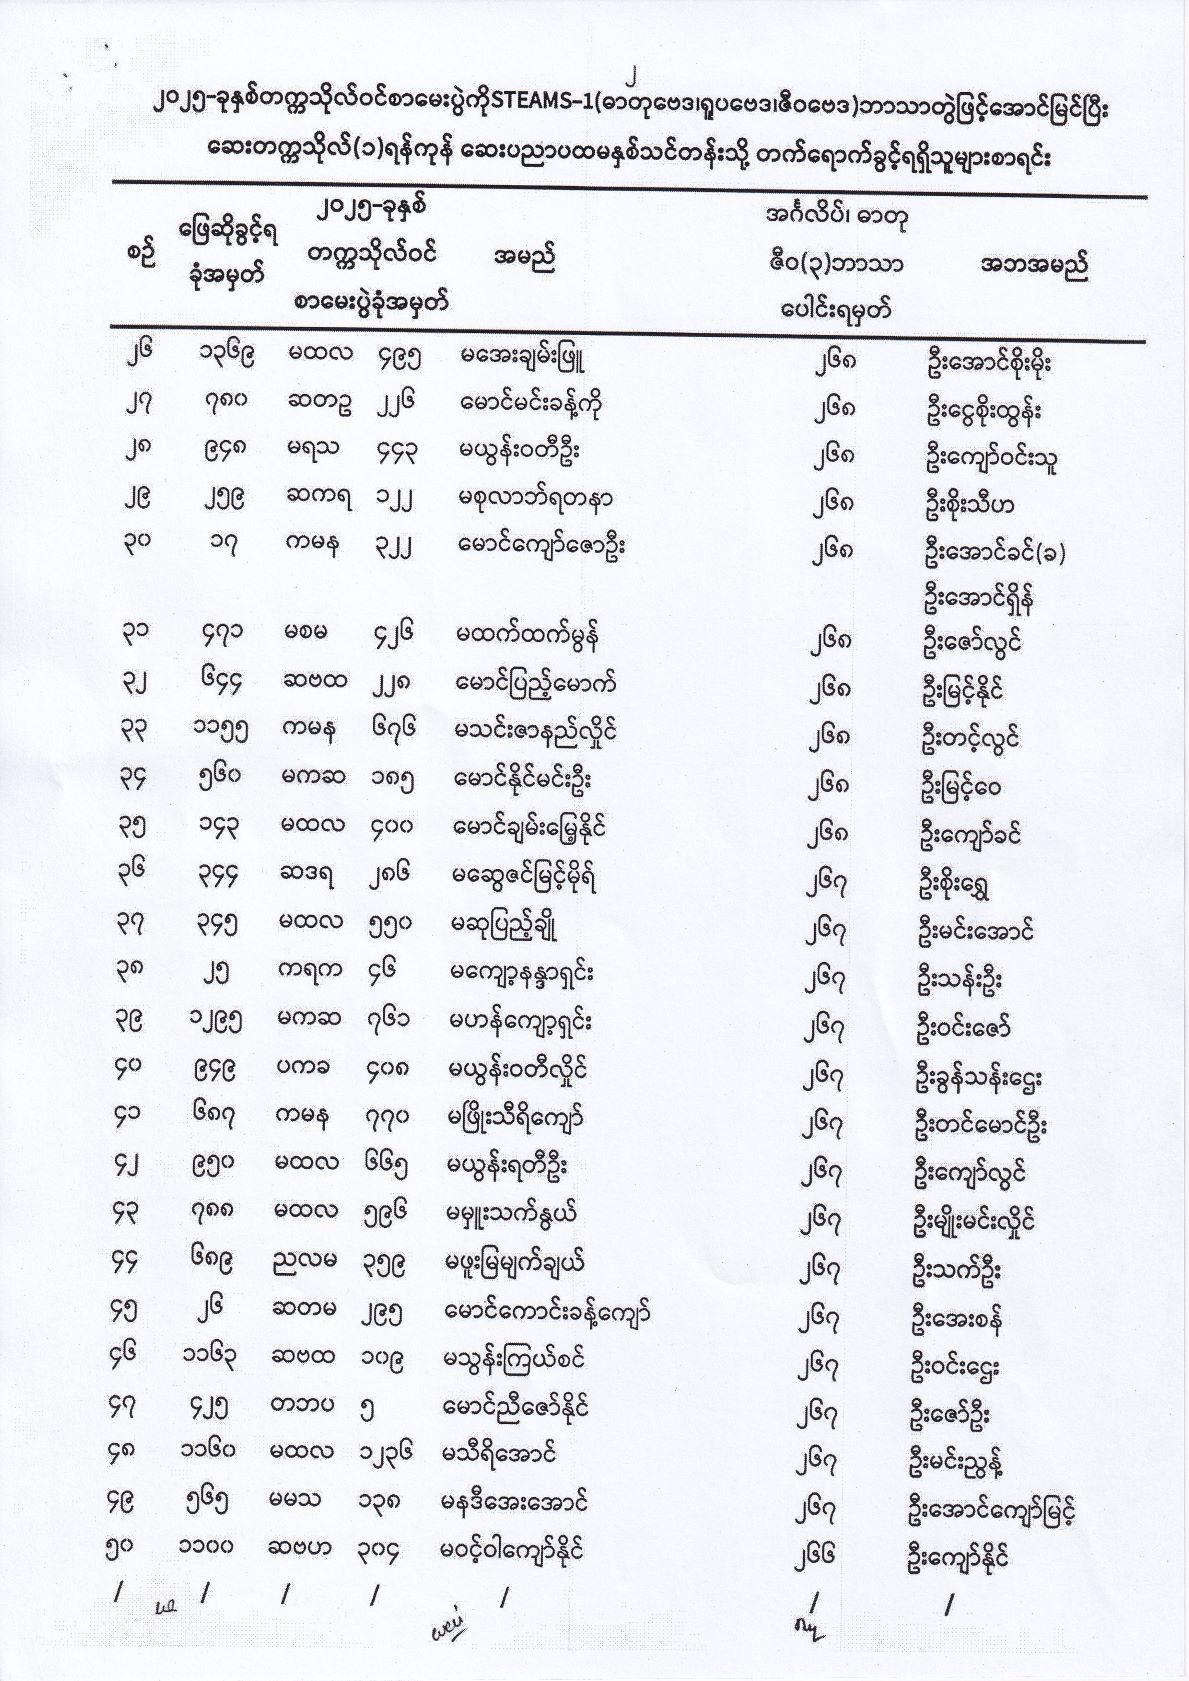 ၂
၂၀၂၅-ခုနှစ်တက္ကသိုလ်ဝင်စာမေးပွဲကိုSTEAMS-1(ဓာတုဗေဒ၊ရူပဗေဒ၊ဇီဝဗေဒ)ဘာသာတွဲဖြင့်အောင်မြင်ပြီး
ဆေးတက္ကသိုလ်(၁)ရန်ကုန် ဆေးပညာပထမနှစ်သင်တန်းသို့ တက်ရောက်ခွင့်ရရှိသူများစာရင်း
စဉ် ဖြေဆိုခွင့်ရ ခုံအမှတ် ၂၀၂၅-ခုနှစ် တက္ကသိုလ်ဝင် စာမေးပွဲခုံအမှတ် အမည် အင်္ဂလိပ်၊ ဓာတု ဇီဝ(၃)ဘာသာ ပေါင်းရမှတ် အဘအမည်
၂၆ ၁၃၆၉ မထလ ၄၉၅ မအေးချမ်းဖြူ ၂၆၈ ဦးအောင်စိုးမိုး
၂၇ ၇၈၀ ဆတဥ ၂၂၆ မောင်မင်းခန့်ကို ၂၆၈ ဦးငွေစိုးထွန်း
၂၈ ၉၄၈ မရသ ၄၄၃ မယွန်းဝတီဦး ၂၆၈ ဦးကျော်ဝင်းသူ
၂၉ ၂၅၉ ဆကရ ၁၂၂ မစုလာဘ်ရတနာ ၂၆၈ ဦးစိုးသီဟ
၃၀ ၁၇ ကမန ၃၂၂ မောင်ကျော်ဇောဦး ၂၆၈ ဦးအောင်ခင်(ခ)
ဦးအောင်ရှိန်
၃၁ ၄၇၁ မစမ ၄၂၆ မထက်ထက်မွန် ၂၆၈ ဦးဇော်လွင်
၃၂ ၆၄၄ ဆဗထ ၂၂၈ မောင်ပြည့်မောက် ၂၆၈ ဦးမြင့်နိုင်
၃၃ ၁၁၅၅ ကမန ၆၇၆ မသင်းဇာနည်လှိုင် ၂၆၈ ဦးတင့်လွင်
၃၄ ၅၆၀ မကဆ ၁၈၅ မောင်နိုင်မင်းဦး ၂၆၈ ဦးမြင့်ဝေ
၃၅ ၁၄၃ မထလ ၄၀၀ မောင်ချမ်းမြွေ့နိုင် ၂၆၈ ဦးကျော်ခင်
၃၆ ၃၄၄ ဆဒရ ၂၈၆ မဆွေဇင်မြင့်မိုရ် ၂၆၇ ဦးစိုးရွှေ
၃၇ ၃၄၅ မထလ ၅၅၀ မဆုပြည့်ချို ၂၆၇ ဦးမင်းအောင်
၃၈ ၂၅ ကရက ၄၆ မကျော့နန္ဒာရှင်း ၂၆၇ ဦးသန်းဦး
၃၉ ၁၂၉၅ မကဆ ၇၆၁ မဟန်ကျော့ရှင်း ၂၆၇ ဦးဝင်းဇော်
၄၀ ၉၄၉ ပကခ ၄၀၈ မယွန်းဝတီလှိုင် ၂၆၇ ဦးခွန်သန်းဌေး
၄၁ ၆၈၇ ကမန ၇၇၀ မဖြိုးသီရိကျော် ၂၆၇ ဦးတင်မောင်ဦး
၄၂ ၉၅၀ မထလ ၆၆၅ မယွန်းရတီဦး ၂၆၇ ဦးကျော်လွင်
၄၃ ၇၈၈ မထလ ၅၉၆ မမှူးသက်နွယ် ၂၆၇ ဦးမျိုးမင်းလှိုင်
၄၄ ၆၈၉ ညလမ ၃၅၉ မဖူးမြမျက်ချယ် ၂၆၇ ဦးသက်ဦး
၄၅ ၂၆ ဆတမ ၂၉၅ မောင်ကောင်းခန့်ကျော် ၂၆၇ ဦးအေးစန်
၄၆ ၁၁၆၃ ဆဗထ ၁၀၉ မသွန်းကြယ်စင် ၂၆၇ ဦးဝင်းဌေး
၄၇ ၄၂၅ တဘပ ၅ မောင်ညီဇော်နိုင် ၂၆၇ ဦးဇော်ဦး
၄၈ ၁၁၆၀ မထလ ၁၂၃၆ မသီရိအောင် ၂၆၇ ဦးမင်းညွန့်
၄၉ ၅၆၅ မမသ ၁၃၈ မနဒီအေးအောင် ၂၆၇ ဦးအောင်ကျော်မြင့်
၅၀ ၁၁၀၀ ဆဗဟ ၃၀၄ မဝင့်ဝါကျော်နိုင် ၂၆၆ ဦးကျော်နိုင်
/ / / / / / /